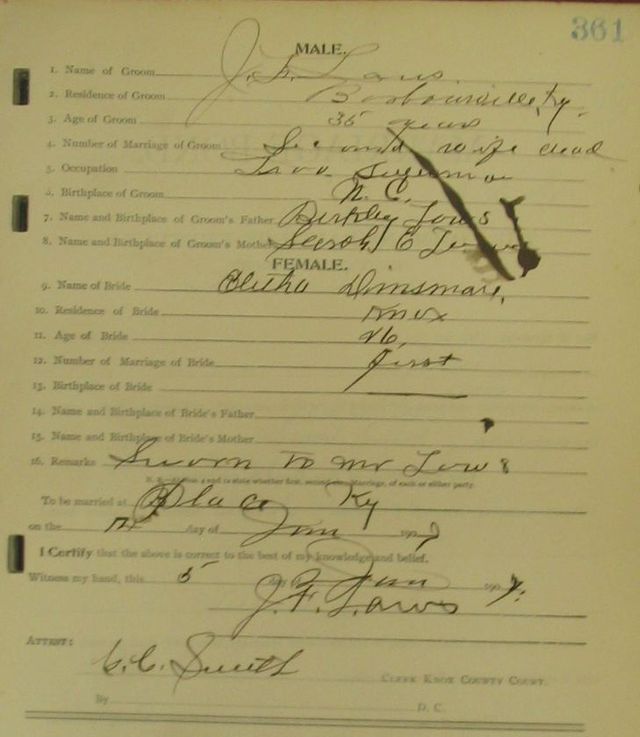 361
MALE.
1. Name of Groom J. F. Laws
2. Residence of Groom Barbourville, Ky.
3. Age of Groom 35 years
4. Number of Marriage of Groom Second wife dead
5. Occupation
6. Birthplace of Groom N. C.
7. Name and Birthplace of Groom's Father Berkley Laws
8. Name and Birthplace of Groom's Mother Sarah C Laws
FEMALE.
9. Name of Bride Dinsmore,
10. Residence of Bride Knox
11. Age of Bride 26,
12. Number of Marriage of Bride first
13. Birthplace of Bride
14. Name and Birthplace of Bride's Father
15. Name and Birthplace of Bride's Mother
16. Remarks Sworn to mr Laws
state whether first, second, Marriage, of each or either party.
To be married at Place Ky
on the day of Jan 190
I Certify that the above is correct to the best of my knowledge and belief.
Witness my hand, this 5 day Jan 190
J. F. Laws
ATTEST:
C. C. Smith
CLERK KNOX COUNTY COURT.
By D. C.